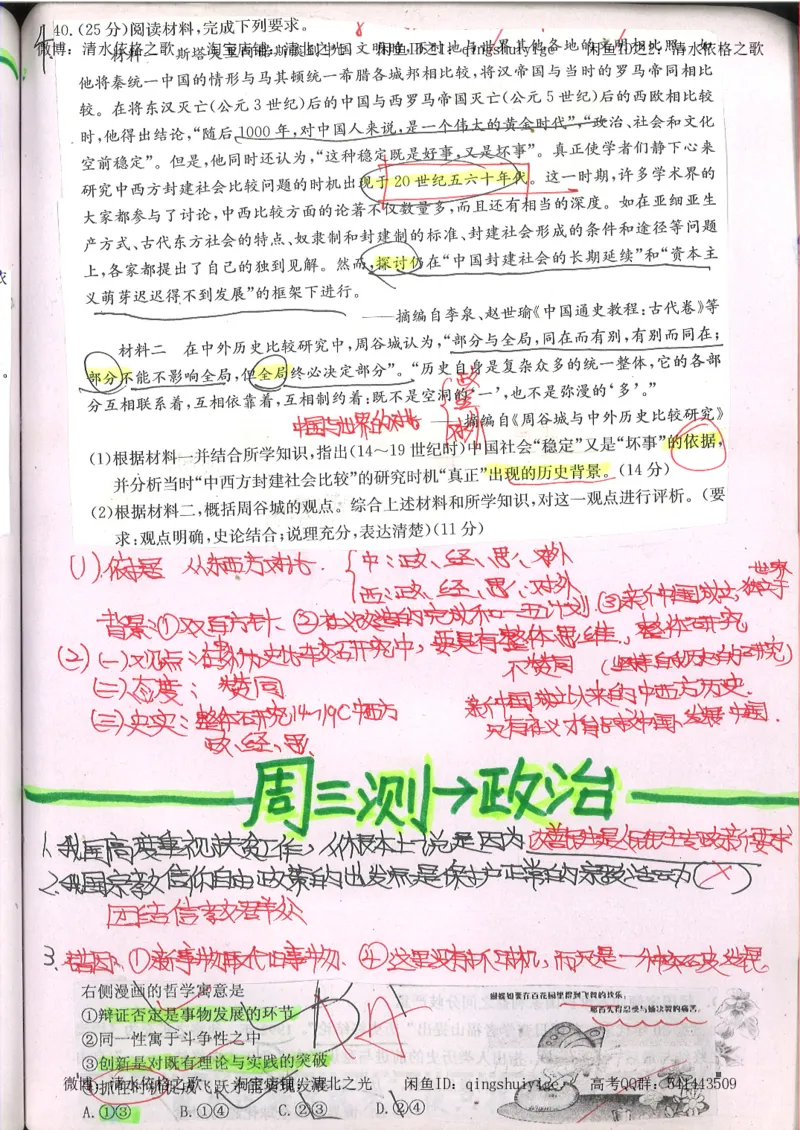 40.(25分)阅读材料,完成下列要求。
微博：清水依格之歌 淘宝店铺：清北之光 闲鱼ID21：qingshuiyige 闲鱼ID22：清水依格之歌
材料一 斯塔夫里阿诺斯 中国文明 世界其他各地的文明相比照。如
他将秦统一中国的情形与马其顿统一希腊各城邦相比较,将汉帝国与当时的罗马帝同相比
较。在将东汉灭亡(公元3世纪)后的中国与西罗马帝国灭亡(公元5世纪)后的西欧相比较
时,他得出结论,“随后,1000年,对中国人来说,是一个伟大的黄金时代”,“政治、社会和文化
空前稳定”。但是,他同时还认为,“这种稳定既是好事,又是坏事”。真正使学者们静下心来
研究中西方封建社会比较问题的时机出现于20世纪五六十年代。这一时期,许多学术界的
大家都参与了讨论,中西比较方面的论著不仅数量多,而且还有相当的深度。如在亚细亚生
产方式、古代东方社会的特点、奴隶制和封建制的标准、封建社会形成的条件和途径等问题
上,各家都提出了自己的独到见解。然而,探讨仍在“中国封建社会的长期延续”和“资本主
义萌芽迟迟得不到发展”的框架下进行。
——摘编自李泉、赵世瑜《中国通史教程:古代卷》等
材料二 在中外历史比较研究中,周谷城认为,“部分与全局,同在而有别,有别而同在;
部分不能不影响全局,但全局终必决定部分”。“历史自身是复杂众多的统一整体,它的各部
分互相联系着,互相依靠着,互相制约着;既不是空洞的‘一’,也不是弥漫的‘多’。”
中国与世界的对比
——摘编自《周谷城与中外历史比较研究》
(1)根据材料一并结合所学知识,指出(14～19世纪时)中国社会“稳定”又是“坏事”的依据,
并分析当时“中西方封建社会比较”的研究时机“真正”出现的历史背景。(14分)
(2)根据材料二,概括周谷城的观点。综合上述材料和所学知识,对这一观点进行评析。(要
求:观点明确,史论结合;说理充分,表达清楚)(11分)
(1).依据 从东西方对比. 中:政、经、思、对外
西:政、经、思、对外
背景:①双百方针、②社会改造的完成和一五计划 ③新中国成立,独立于世界
(2)(一)观点:在 历史比较研究中,要具有整体思维,整体研究
不赞同
(二)态度:赞同
(三)史实:整体研究14-19C中西方
政、经、思、
新中国成立以来的中西方历史.
只有社会主义才能救中国、发展中国.
周三测→政治
1.我国高度重视扶贫工作,从根本上说是因为 改善民生是人民民主专政的新要求
2.我国宗教信仰自由政策的出发点是保护正常的宗教活动(×)
团结信教群众
3.错因:①新事物取代旧事物. ④这里没有抓时机,而只是一种 发展.
右侧漫画的哲学寓意是
①辩证否定是事物发展的环节
②同一性寓于斗争性之中
③创新是对既有理论与实践的突破
④抓住时机促成飞跃才能实现发展
A.①③ B.①④ C.②③ D.②④
B A
蝴蝶如要在百花园里得到飞舞的快乐,
那首先得忍受与蛹决裂的痛苦。
微博：清水依格之歌 淘宝店铺：清北之光 闲鱼ID：qingshuiyige 高考QQ群：541443509